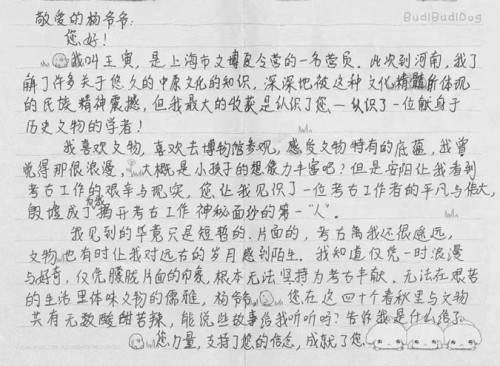 敬爱的杨爷爷:
BudiBudiDog
您好!
我叫王寅,是上海市文博夏令营的一名营员。此次到河南,我了
解了许多关于悠久的中原文化的知识,深深地被这种文化精髓所体现
的民族精神震撼,但我最大的收获是认识了您—认识了一位献身于
历史文物的学者!
我喜欢文物,喜欢去博物馆参观,感受文物特有的底蕴,我曾
觉得那很浪漫,大概是小孩子的想像力丰富吧?但是安阳让我看到
考古工作的艰辛与现实,您让我见识了一位考古工作者的平凡与伟大,
殷墟成了为我揭开考古工作神秘面纱的第一"人"。
我见到的毕竟只是短暂的、片面的,考古离我还很遥远,
文物也有时让我对远古的岁月感到陌生。我知道仅凭一时浪漫
与好奇,仅凭朦胧片面的印象,根本无法坚持为考古奉献,无法在艰苦
的生活里体味文物的儒雅,杨爷爷您在这四十个春秋里与文物
共有无数酸甜苦辣,能说些故事给我听听吗?告诉我是什么给了
您力量,支持了您的信念,成就了您